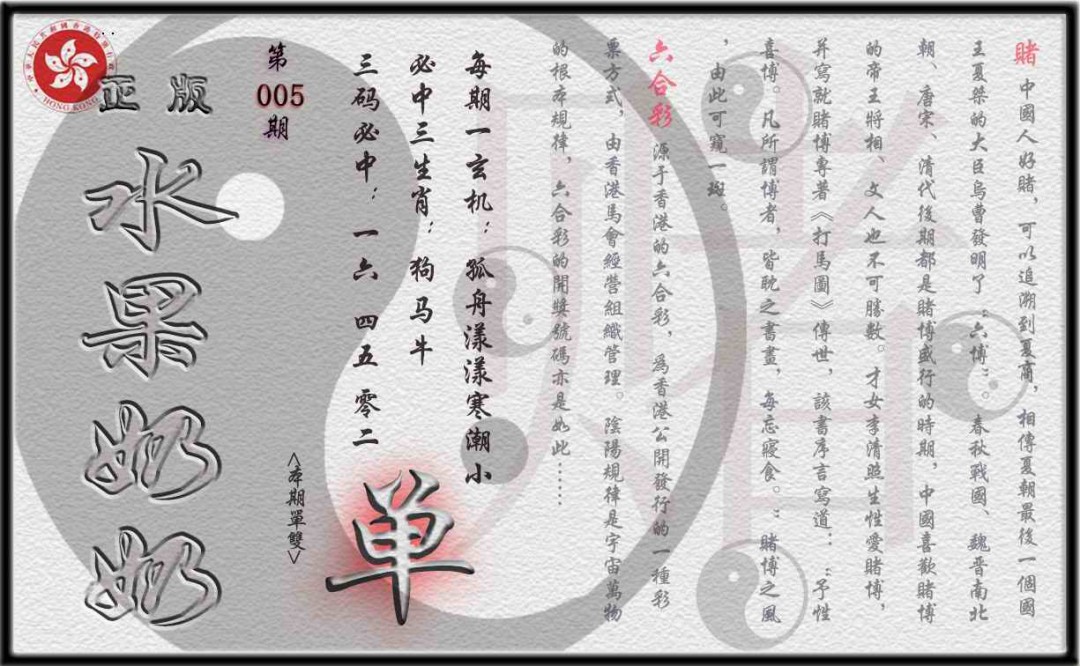 賭 中國人好賭，可以追溯到夏商，相傳夏朝最後一個國
王夏桀的大臣烏曹發明了“六博”。春秋戰國、魏晉南北
朝、唐宋、清代後期都是賭博盛行的時期，中國喜歡賭博
的帝王將相、文人也不可勝數。才女李清照生性愛賭博，
并寫就賭博專著《打馬圖》傳世，該書序言寫道：“予性
喜博。凡所謂博者，皆耽之書畫，每忘寢食。”賭博之風
，由此可窺一斑。
六合彩 源于香港的六合彩，爲香港公開發行的一種彩
票方式，由香港馬會經營組織管理。陰陽規律是宇宙萬物
的根本規律，六合彩的開獎號碼亦是如此……
每期一玄机：孤舟漾漾寒潮小
必中三生肖：狗马牛
三码必中：一六 四五 零二
单
<本期單雙>
第
005
期
正版
水果奶奶
HONG KONG
賭